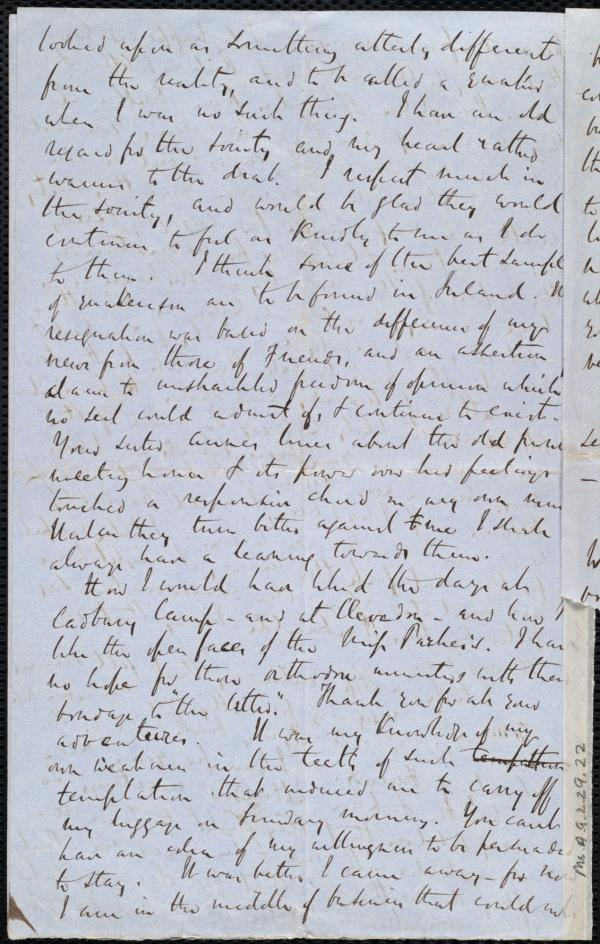 looked upon as something utterly different
from the reality, and to be called a Quaker
when I was no such thing. I have an old
regard for the Society and my heart rather
warms to the drab. I respect much in
the Society, and would be glad they would
continue to feel as kindly to me as I do
to them. I think some of the best sampl
of Quakerism are to be found in Ireland. M
resignation was based on the difference of my
views from those of Friends, and an assertion
claim to unshackled freedom of opinion which
no sect could admit of & continue to exist.
Your sister Anne's lines about the old
meeting house & its power over her feelings
touched a responsive chord in my own
Unless they turn bitter against me I shall
always have a leaning towards them.
How I would have liked the days at
Cadbury Camp - and at Clevedon - and how I
like the open faces of the Miss I have
no hope for those orthodox ministers with their
bondage to "the letter." Thank you for all your
adventures. It was my knowledge of my
own weakness in the teeth of such temptation
temptation that induced me to carry off
my luggage on Sunday morning. You can't
have an idea of my willingness to be persuade
to stay. It was better I came away - for no
I am in the middle of business that could no
Ms A.9.2.29.22